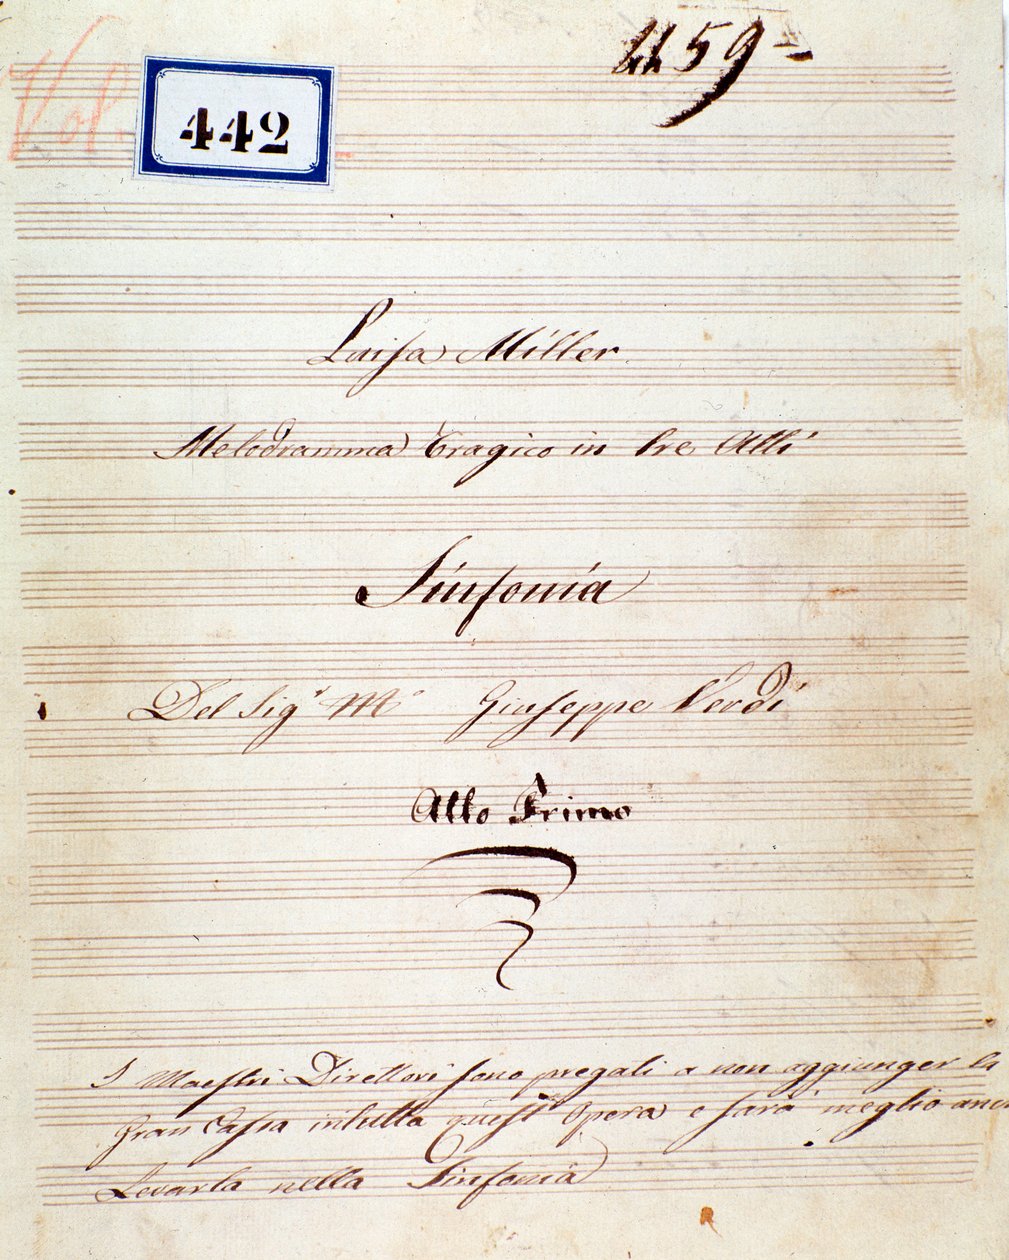 Vol.
442
4459
Luisa Miller
Melodramma Tragico in tre Atti
Sinfonia
Del Sigr Mo Giuseppe Verdi
Atto Primo
I Maestri Direttori sono pregati a non aggiunger la
gran Cassa in tutta quest' Opera e sarà meglio anc
Levarla nella Sinfonia